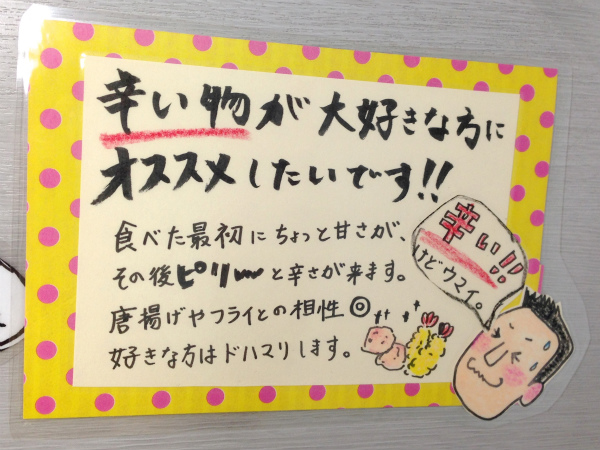 辛い物が大好きな方に
オススメしたいです!!
食べた最初にちょっと甘さが、
その後ピリーと辛さが来ます。
唐揚げやフライとの相性◎
好きな方はドハマリします。
辛い!!
けどウマイ。